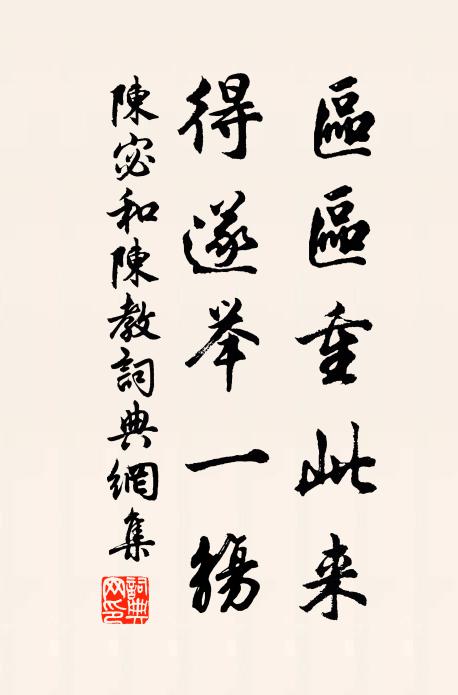 區區重此来
得遂举一觴
陳宓和陳教詞典網集
詞典網印